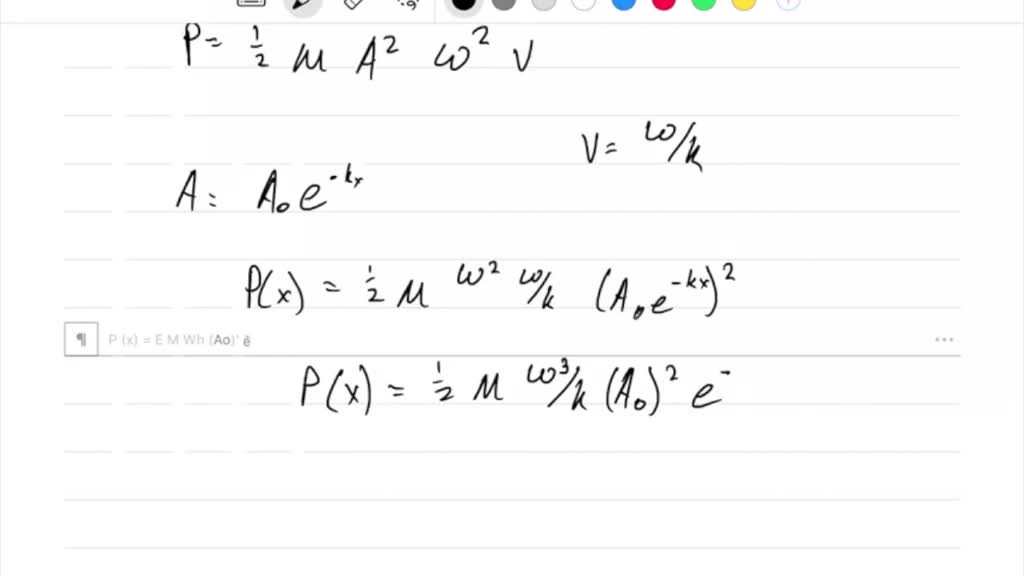 P= 1/2 μ A² ω² v
v= ω/k
A= A₀e^-kx
P(x) = 1/2 μ ω² ω/k (A₀e^-kx)²
P (x) = E M Wh (Ao)' ě
P(x) = 1/2 μ ω³/k (A₀)² e^-